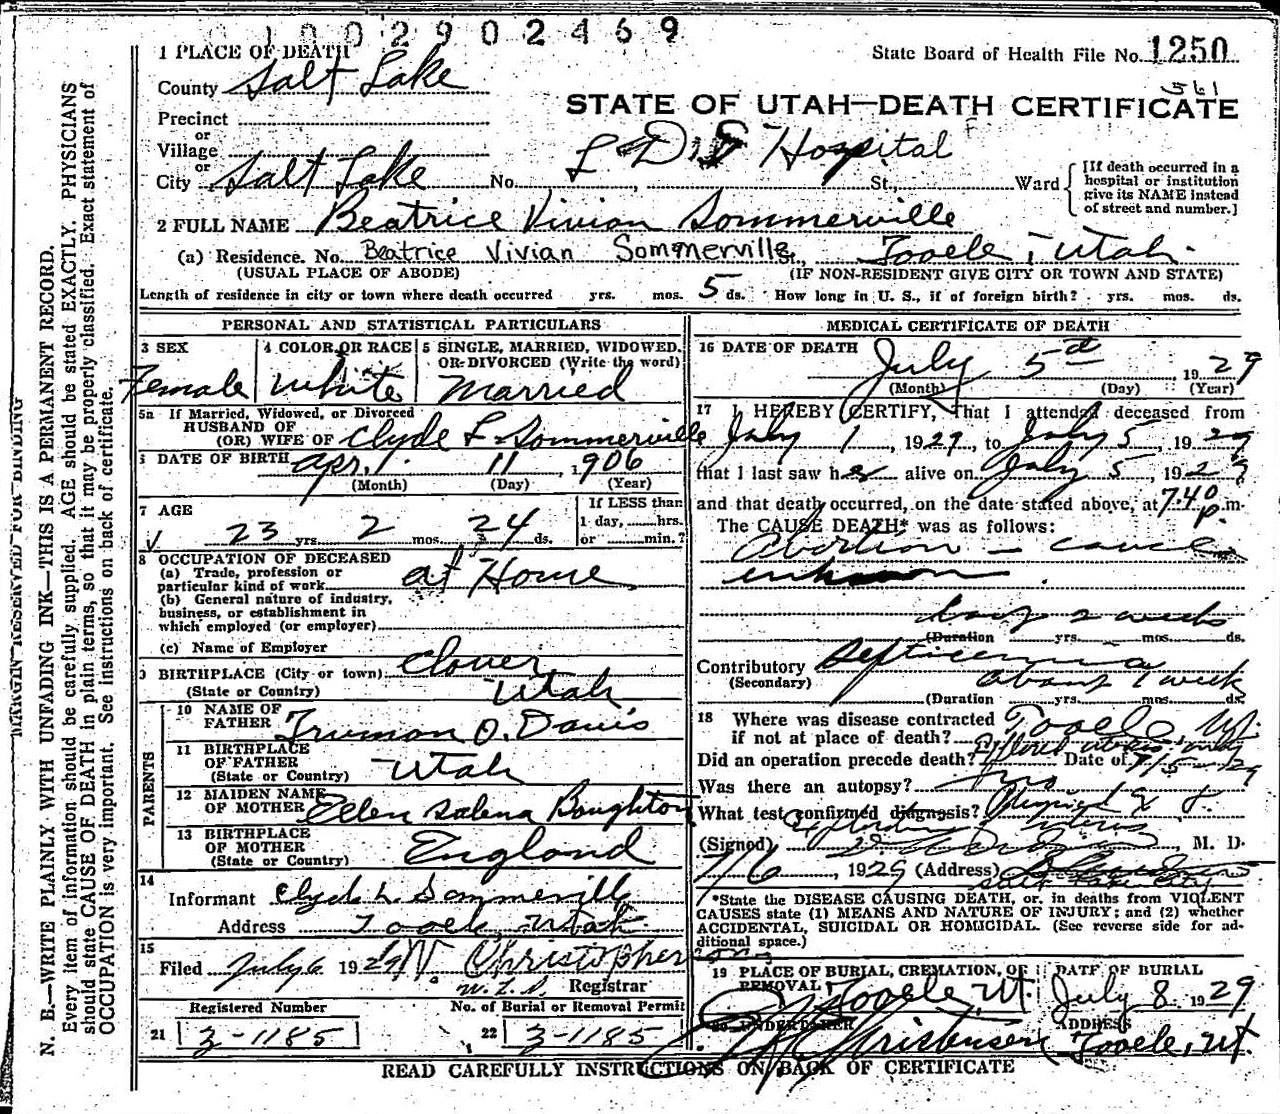 0 1 0 0 2 9 0 2 4 6 9
1 PLACE OF DEATH
State Board of Health File No. 1250
County Salt Lake
561
STATE OF UTAH—DEATH CERTIFICATE
Precinct
or
Village
or
L D S Hospital
F
City Salt Lake No. , St., Ward
[If death occurred in a
hospital or institution
give its NAME instead
of street and number.]
2 FULL NAME Beatrice Vivian Sommerville
(a) Residence. No. Beatrice Vivian Sommerville, Tooele, Utah.
(USUAL PLACE OF ABODE) (IF NON-RESIDENT GIVE CITY OR TOWN AND STATE)
Length of residence in city or town where death occurred yrs. mos. 5 ds. How long in U. S., if of foreign birth? yrs. mos. ds.
PERSONAL AND STATISTICAL PARTICULARS
3 SEX
Female
4 COLOR OR RACE
White
5 SINGLE, MARRIED, WIDOWED,
OR DIVORCED (Write the word)
Married
5a If Married, Widowed, or Divorced
HUSBAND OF
(OR) WIFE OF Clyde L. Sommerville
6 DATE OF BIRTH Apr. 11, 1906
(Month) (Day) (Year)
7 AGE
23 yrs. 2 mos. 24 ds.
If LESS than
1 day, hrs.
or min.?
8 OCCUPATION OF DECEASED
(a) Trade, profession or
particular kind of work At Home
(b) General nature of industry,
business, or establishment in
which employed (or employer)
(c) Name of Employer
9 BIRTHPLACE (City or town) Clover,
(State or Country) Utah
PARENTS
10 NAME OF
FATHER Truman O. Davis
11 BIRTHPLACE
OF FATHER Utah
(State or Country)
12 MAIDEN NAME
OF MOTHER Ellen Salena Boughton
13 BIRTHPLACE
OF MOTHER England
(State or Country)
14
Informant Clyde L. Sommerville
Address Tooele, Utah
15
Filed July 6 1929 W. Christopherson
Registrar
Registered Number
21 3-1185
No. of Burial or Removal Permit
22 3-1185
MEDICAL CERTIFICATE OF DEATH
16 DATE OF DEATH
July 5, 1929
(Month) (Day) (Year)
17 I HEREBY CERTIFY, That I attended deceased from
July 1, 1929, to July 5, 1929
that I last saw her alive on July 5, 1929
and that death occurred, on the date stated above, at 7.40 p.m.
The CAUSE DEATH* was as follows:
Abortion – cause
unknown.
2 weeks
(Duration yrs. mos. ds.
Contributory Septicemia
(Secondary) about 1 week
(Duration yrs. mos. ds.
18 Where was disease contracted
if not at place of death? Tooele, Ut.
Did an operation precede death? Date of 7/5-29
Was there an autopsy? no
What test confirmed diagnosis? Physical
(Signed) , M. D.
7/6, 1929 (Address)
Salt Lake City
*State the DISEASE CAUSING DEATH, or, in deaths from VIOLENT
CAUSES state (1) MEANS AND NATURE OF INJURY; and (2) whether
ACCIDENTAL, SUICIDAL OR HOMICIDAL. (See reverse side for ad-
ditional space.)
19 PLACE OF BURIAL, CREMATION, OR
REMOVAL Tooele, Ut.
DATE OF BURIAL
July 8 1929
20 UNDERTAKER
ADDRESS
Tooele, Ut.
READ CAREFULLY INSTRUCTIONS ON BACK OF CERTIFICATE
MARGIN RESERVED FOR BINDING
N. B.—WRITE PLAINLY WITH UNFADING INK—THIS IS A PERMANENT RECORD.
Every item of information should be carefully supplied. AGE should be stated EXACTLY. PHYSICIANS
should state CAUSE OF DEATH in plain terms, so that it may be properly classified. Exact statement of
OCCUPATION is very important. See instructions on back of certificate.